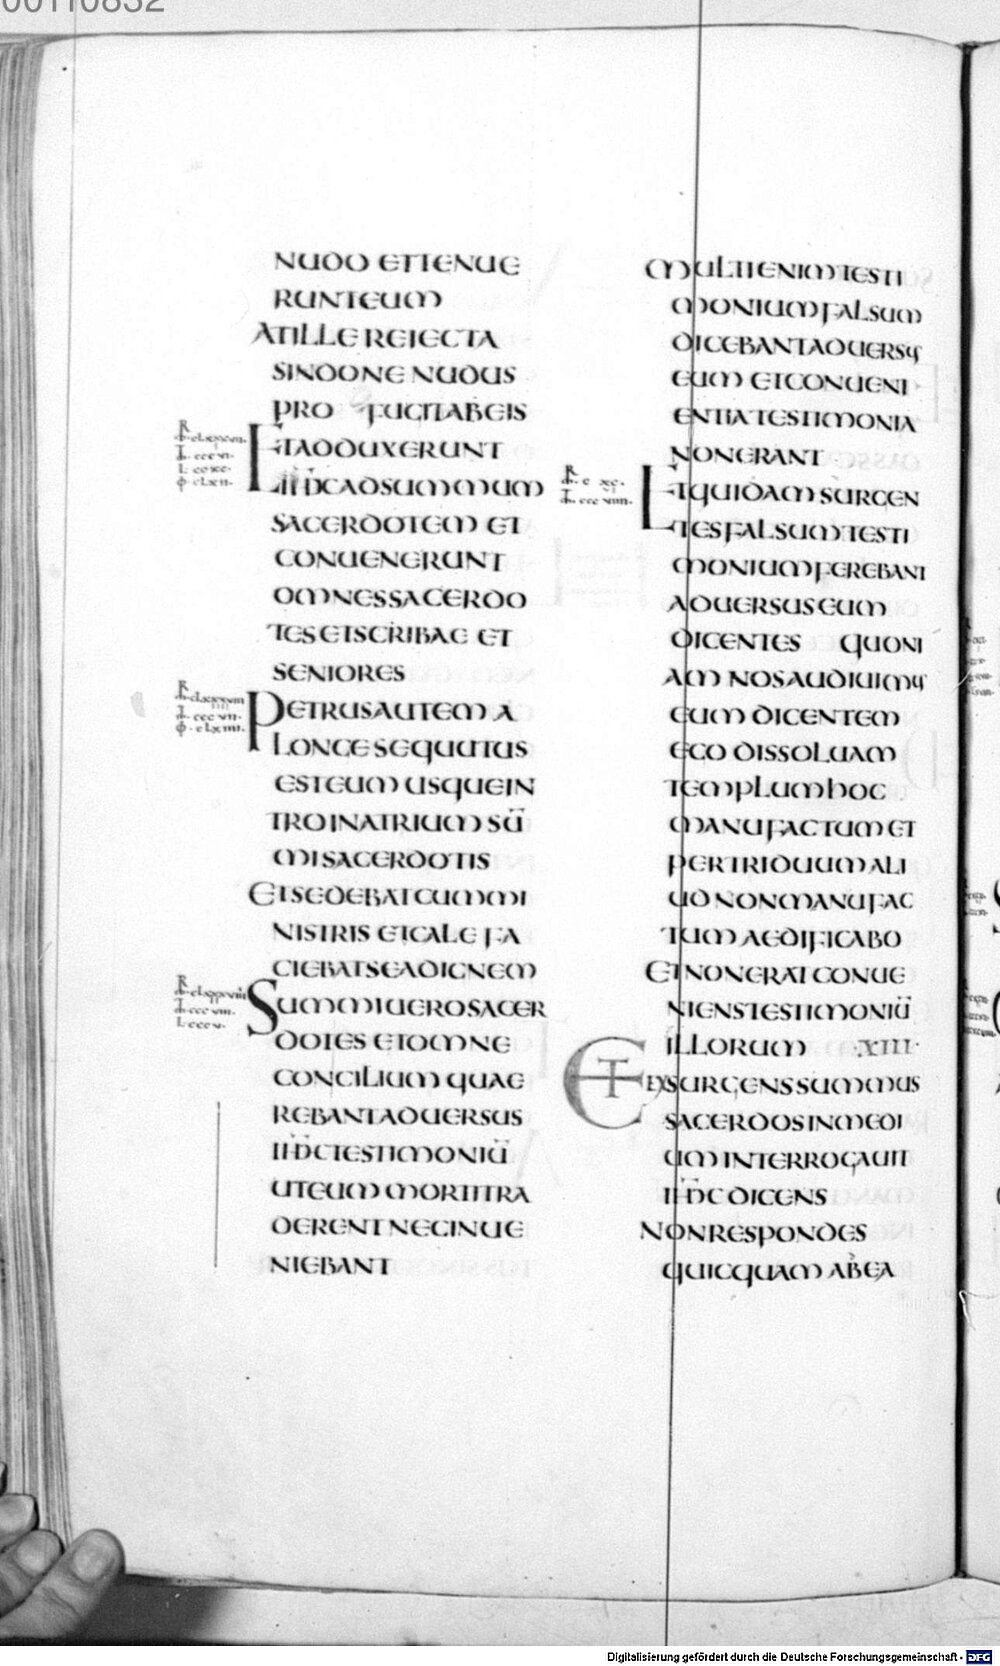 00110832
NUDO ET TENUE
RUNT EUM
AT ILLE REIECTA
SINDONE NUDUS
PRO FUGIT AB EIS
ET ADDUXERUNT
IHM AD SUMMUM
SACERDOTEM ET
CONUENERUNT
OMNES SACERDO
TES ET SCRIBAE ET
SENIORES
PETRUS AUTEM A
LONGE SEQUUTUS
EST EUM USQUE IN
TRO IN ATRIUM SŪ
MI SACERDOTIS
ET SEDEBAT CUM MI
NISTRIS ET CALE FA
CIEBAT SE AD IGNEM
SUMMI UERO SACER
DOTES ET OMNE
CONCILIUM QUAE
REBANT ADUERSUS
TESTIMONIŪ
UT EUM MORTI TRA
DERENT NEC INUE
NIEBANT
MULTI ENIM TESTI
MONIUM FALSUM
DICEBANT ADUERSUS
EUM ET CONUENI
ENTIA TESTIMONIA
NON ERANT
ET QUIDAM SURGEN
TES FALSUM TESTI
MONIUM FEREBANT
ADUERSUS EUM
DICENTES QUONI
AM NOS AUDIUIMUS
EUM DICENTEM
EGO DISSOLUAM
TEMPLUM HOC
MANU FACTUM ET
PER TRIDUUM ALI
UD NON MANU FAC
TUM AEDIFICABO
ET NON ERAT CONUE
NIENS TESTIMONIŪ
ILLORUM ·XIII·
ET EXSURGENS SUMMUS
SACERDOS IN MEDI
UM INTERROGAUIT
DICENS
NON RESPONDES
QUICQUAM AD EA
Digitalisierung gefördert durch die Deutsche Forschungsgemeinschaft - DFG